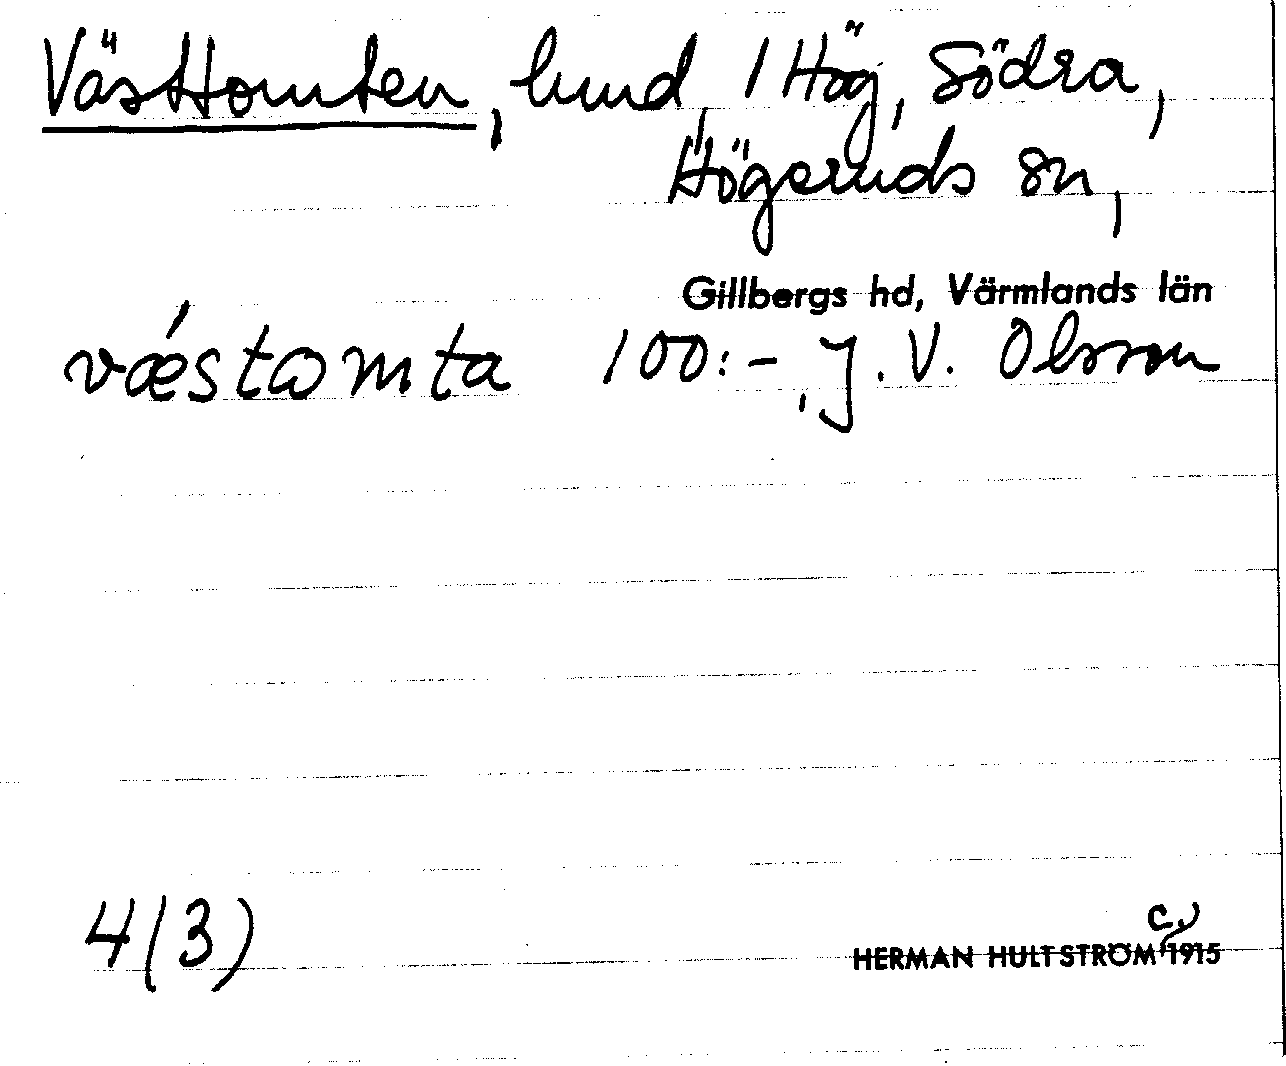 Västtomten, lund, 1 Hög, Södra,
Högeruds sn,
Gillbergs hd, Värmlands län
væ´stωmta 100:- J. V. Olsson
4(3)
c.
HERMAN HULTSTRÖM 1915